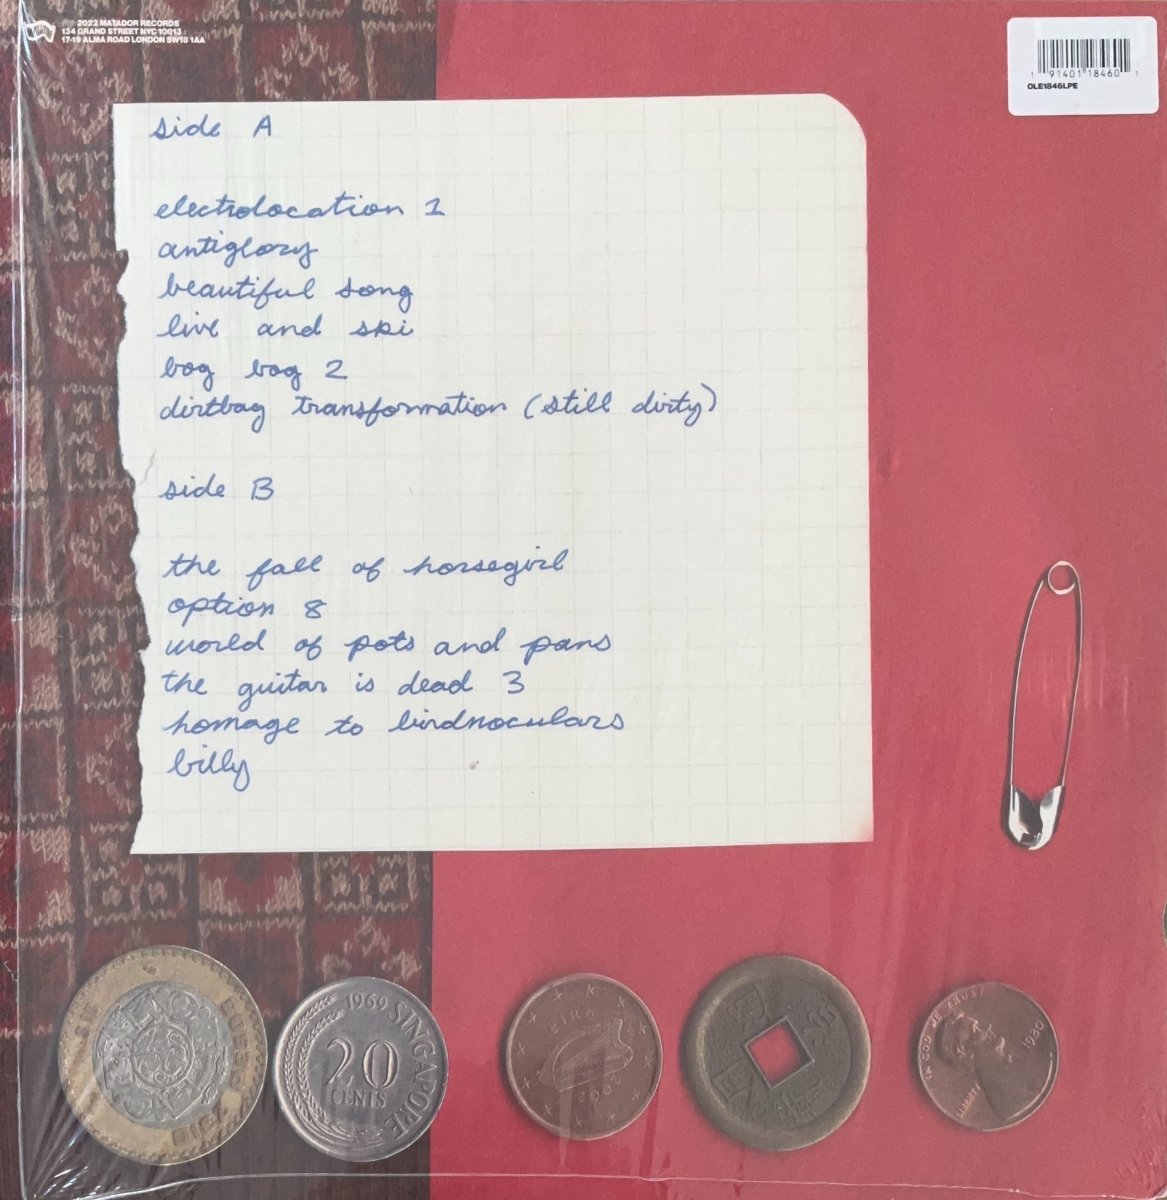 2022 MATADOR RECORDS
134 GRAND STREET NYC 10013
17-19 ALMA ROAD LONDON SW18 1AA
1 91401 18460 1
OLE1846LPE
side A
electrolocation 1
antiglory
beautiful song
live and ski
bog bog 2
dirtbag transformation (still dirty)
side B
the fall of horsegirl
option 8
world of pots and pans
the guitar is dead 3
homage to birdnoculars
billy
1969 SINGAPORE
20
CENTS
EIRE
2002
IN GOD WE TRUST
LIBERTY
1980